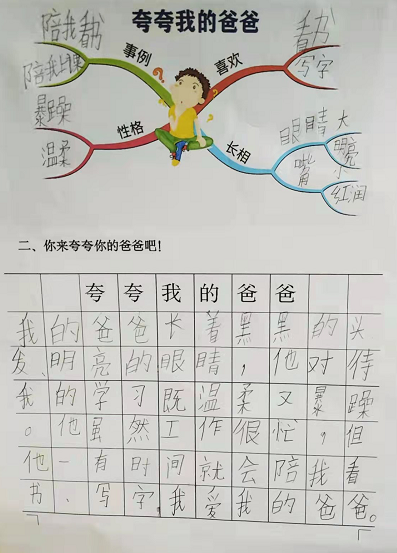 夸夸我的爸爸
陪我看书
陪我上课
事例
喜欢
看书
写字
暴躁
温柔
性格
长相
眼睛
大
明亮
嘴
小
红润
二、你来夸夸你的爸爸吧！
夸夸我的爸爸
我的爸爸长着黑黑的头
发、明亮的眼睛，他对待
我的学习既温柔又暴躁
。他虽然工作很忙，但
他一有时间就会陪我看
书、写字，我爱我的爸爸。